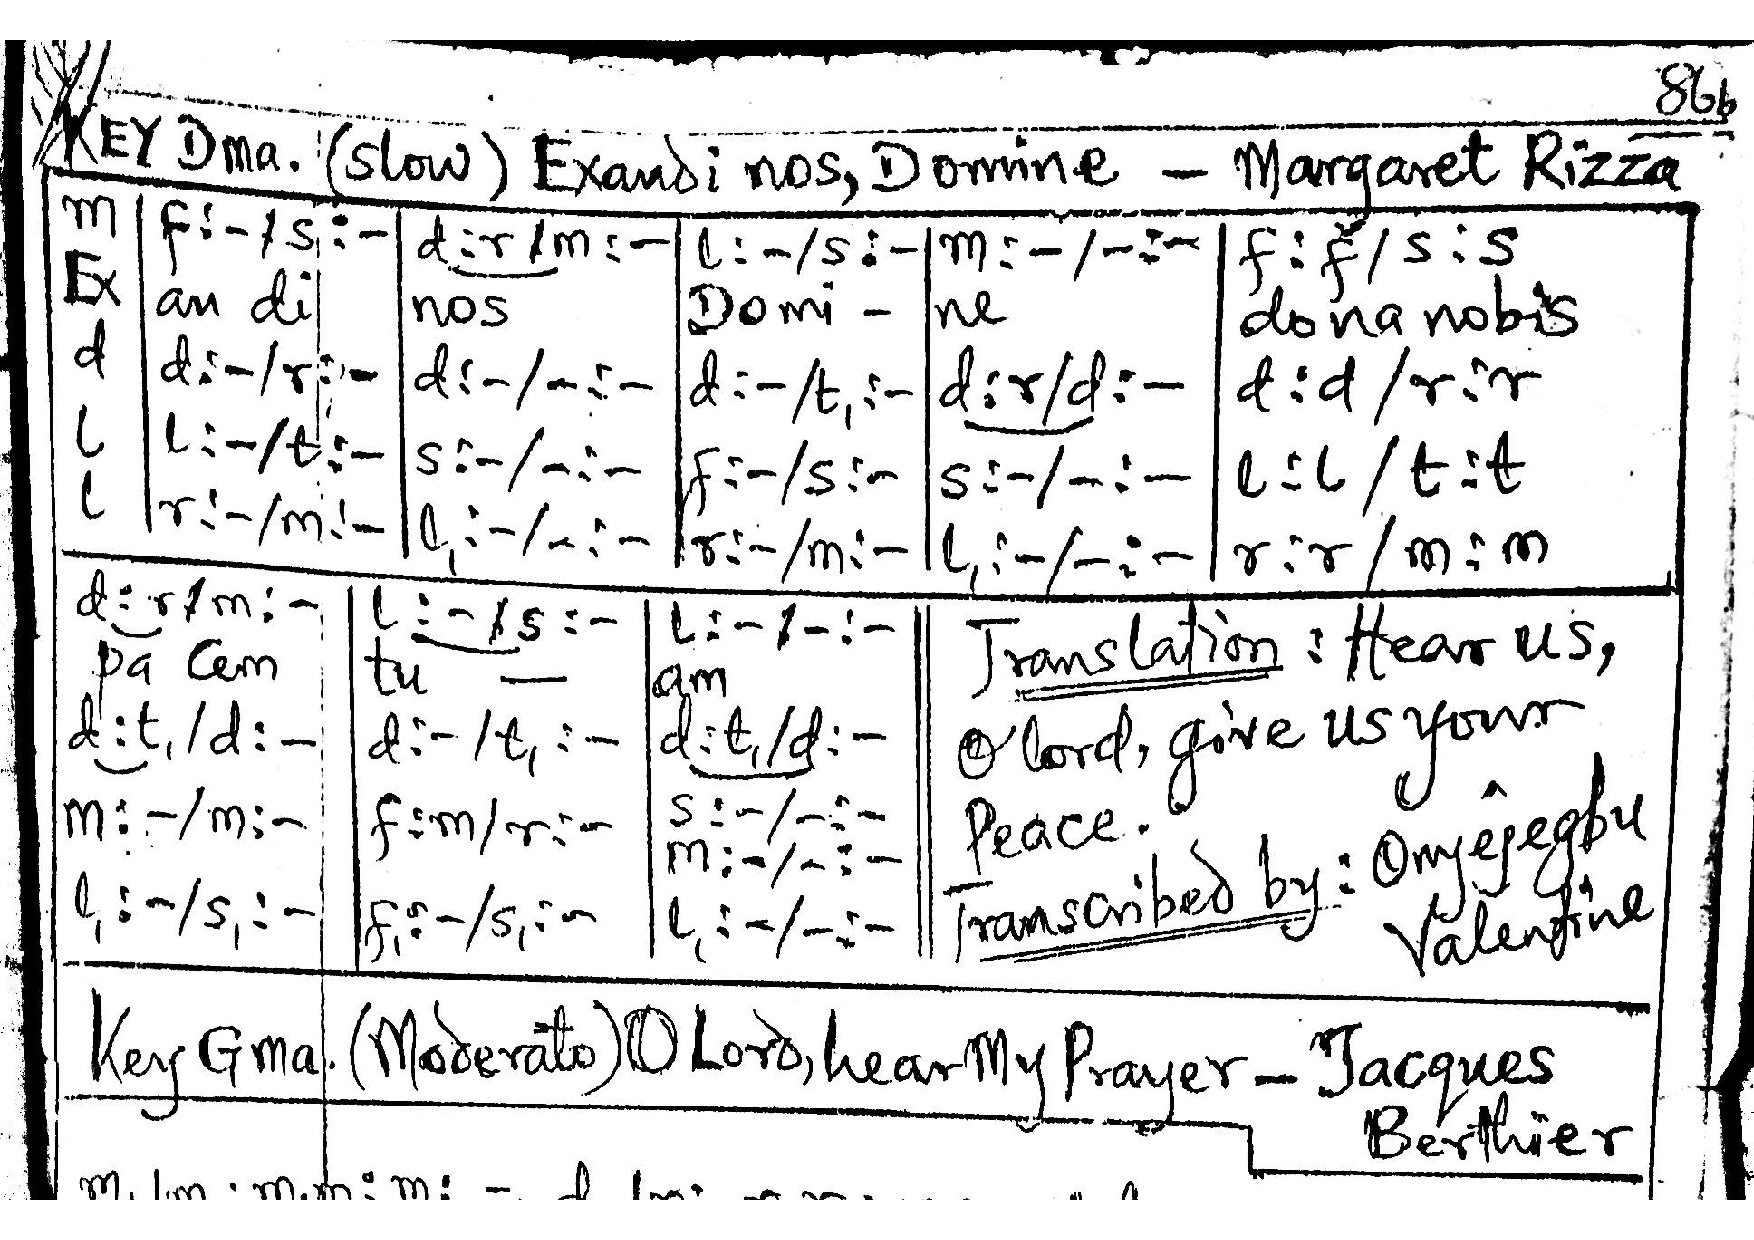 86b
KEY Dma. (slow) Exaudi nos, Domine – Margaret Rizza
m | f:-/s:- | d:r/m:- | l:-/s:- | m:-/-:- | f:f/s:s
Ex | au di | nos | Domi - | ne | dona nobis
d | d:-/r:- | d:-/-:- | d:-/t,:- | d:r/d:- | d:d/r:r
l | l:-/t:- | s:-/-:- | f:-/s:- | s:-/-:- | l:l/t:t
l | r:-/m:- | l,:-/-:- | r:-/m:- | l,:-/-:- | r:r/m:m
d:r/m:- | l:-/s:- | l:-/-:- ||
pa cem | tu — | am
d:t,/d:- | d:-/t,:- | d:t,/d:-
m:-/m:- | f:m/r:- | s:-/-:-
m:-/-:-
l,:-/s,:- | f,:-/s,:- | l,:-/-:-
Translation : Hear us,
O lord, give us your
Peace.
Transcribed by: Onyejegbu
Valentine
Key G ma. (Moderato) O Lord, hear My Prayer – Jacques
Berthier